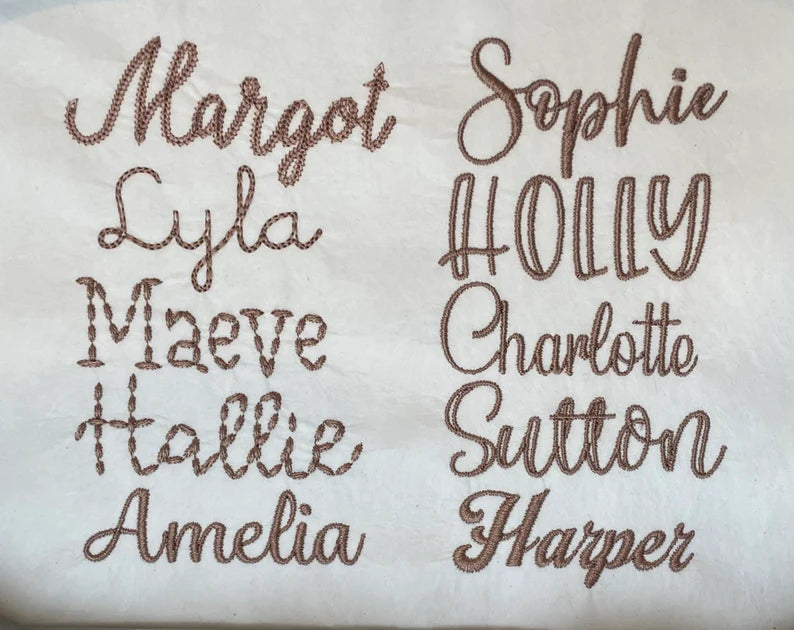 Margot
Lyla
Maeve
Hallie
Amelia
Sophie
HOLLY
Charlotte
Sutton
Harper